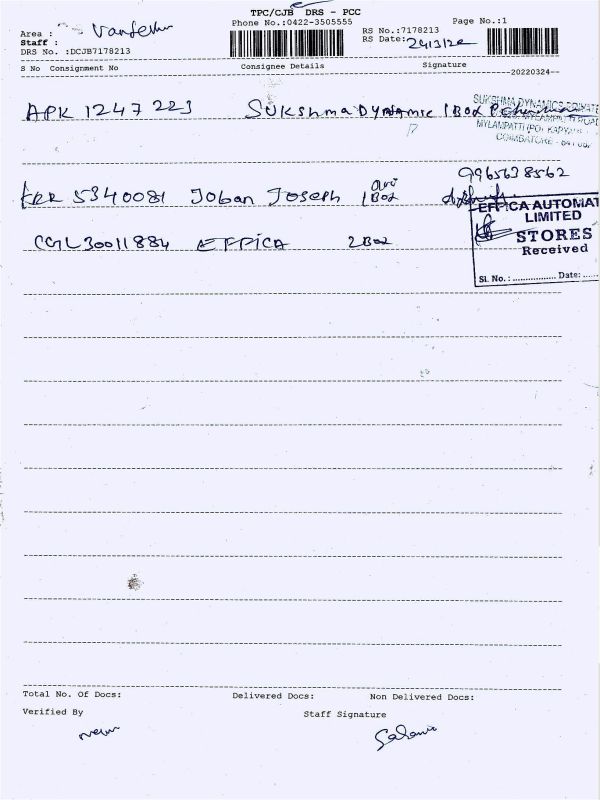 TPC/CJB DRS - PCC
Phone No.:0422-3505555
Page No.:1
Area :
Staff :
DRS No. :DCJB7178213
RS No.:7178213
RS Date: 24/3/22
S No Consignment No Consignee Details Signature
20220324
APK 1247 223 SUKshma Dynamic 1 Box
SUKSHMA DYNAMICS PRIVATE
MYLAMPATTI (PO)
COIMBATORE
9965638562
KRR 5340081 Joban Joseph 1 Box
CGL30011884 EFFICA 2 Box
EFFICA AUTOMAT
LIMITED
STORES
Received
Sl. No.: Date:
Total No. Of Docs: Delivered Docs: Non Delivered Docs:
Verified By Staff Signature